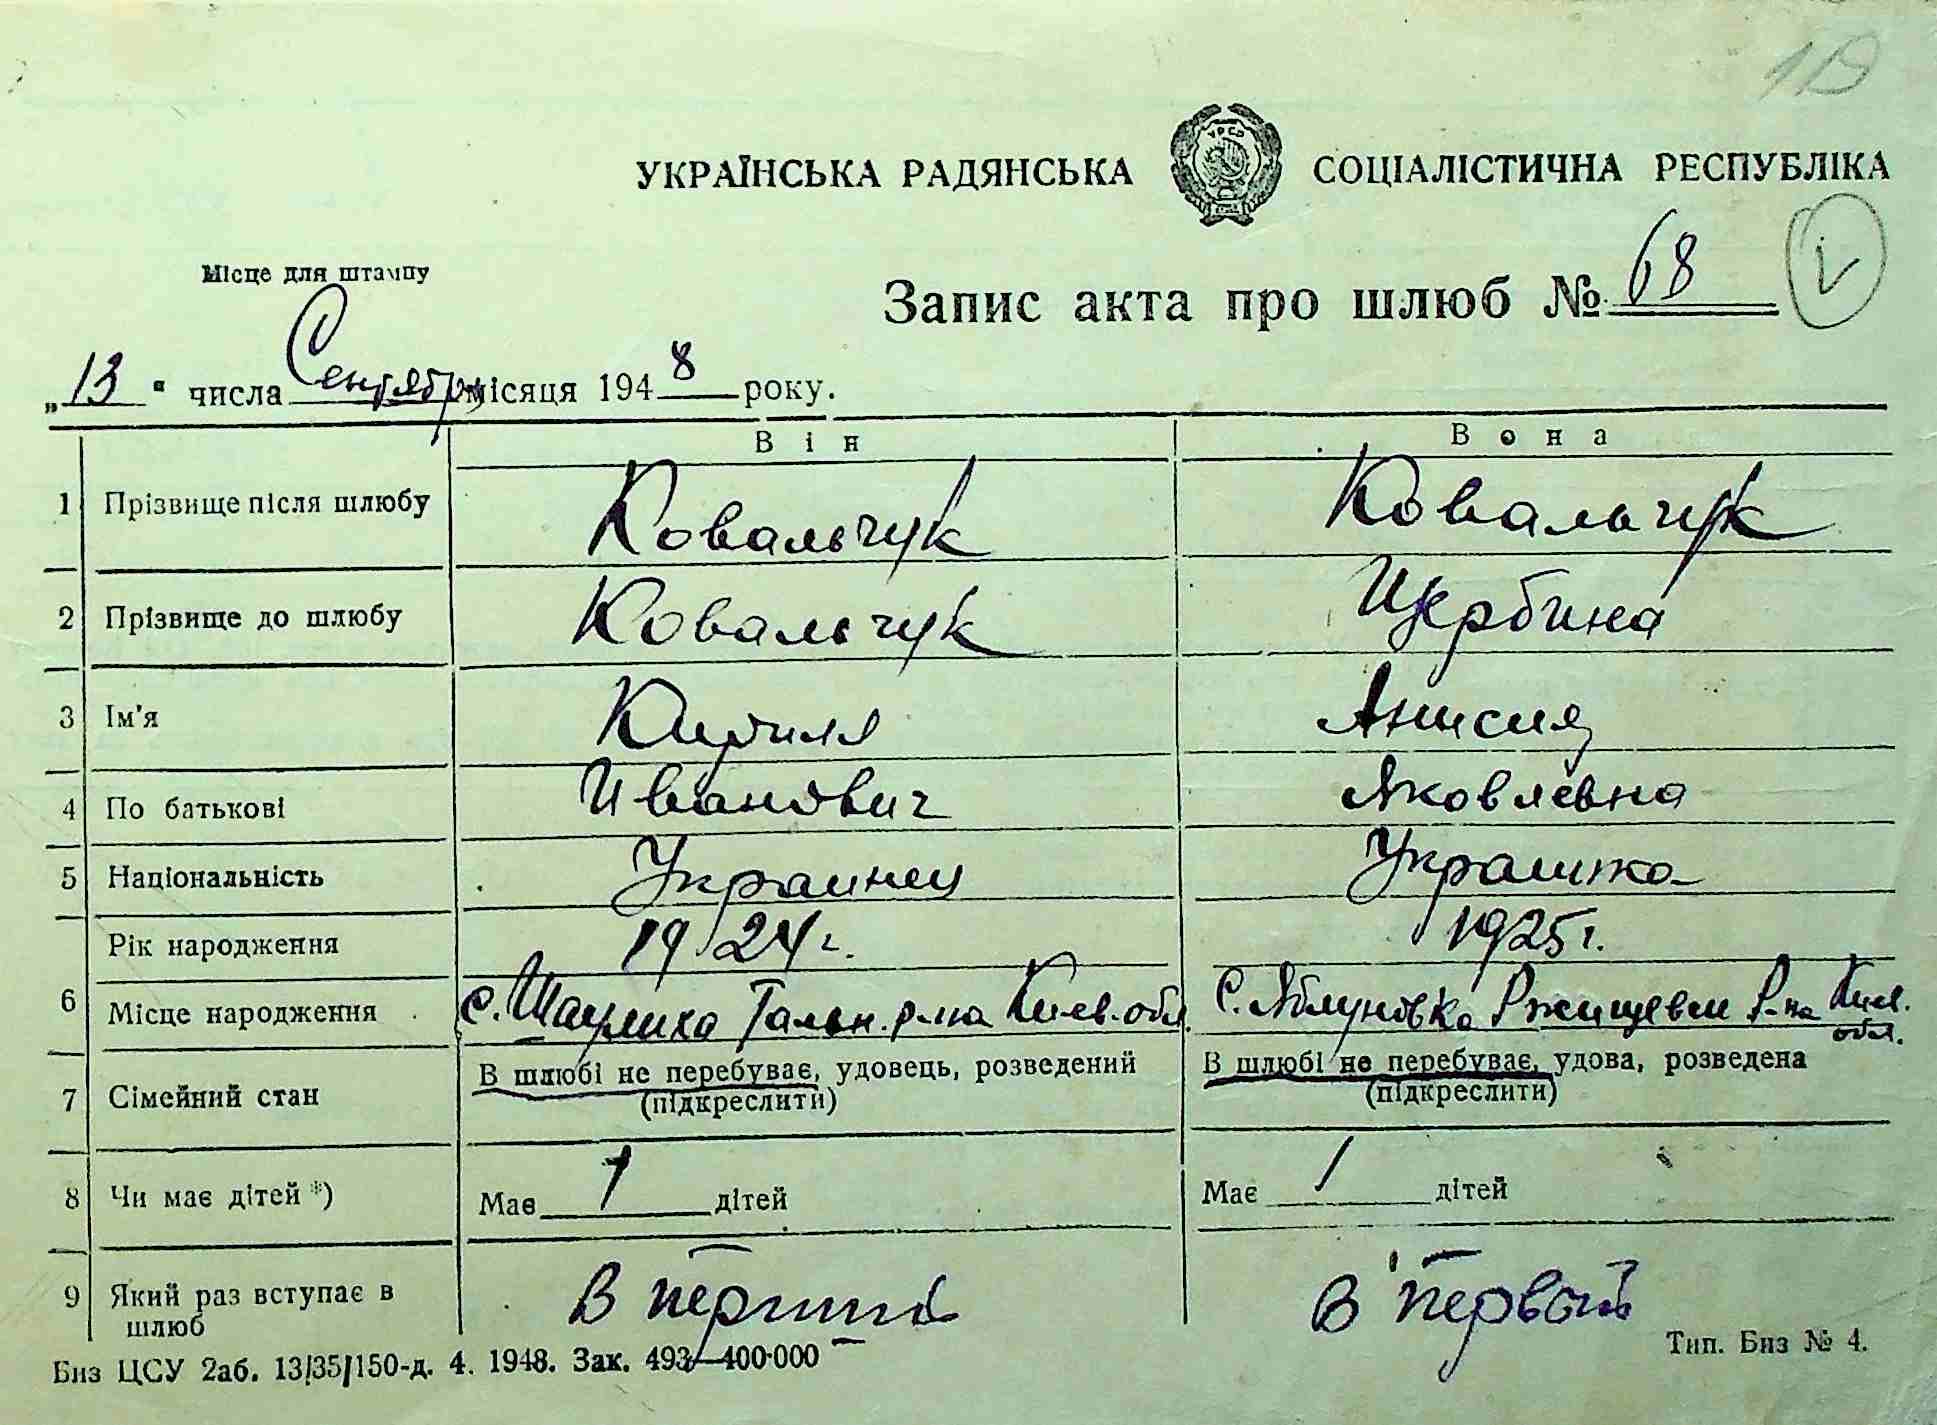 119
УКРАЇНСЬКА РАДЯНСЬКА СОЦІАЛІСТИЧНА РЕСПУБЛІКА
УРСР
Місце для штампу
Запис акта про шлюб № 68
„13" числа Сентября місяця 1948 року.
Він Вона
1 Прізвище після шлюбу Ковальчук Ковальчук
2 Прізвище до шлюбу Ковальчук Щербина
3 Ім'я Кирилл Анисия
4 По батькові Иванович Яковлевна
5 Національність Украинец Украинка
Рік народження 1924 г. 1925 г.
6 Місце народження с. Шаулиха Тальн. р-на Киев. обл. с. Яблуновка Ржищевск Р-на Киев. обл.
7 Сімейний стан В шлюбі не перебуває, удовець, розведений В шлюбі не перебуває, удова, розведена
(підкреслити) (підкреслити)
8 Чи має дітей *) Має 1 дітей Має 1 дітей
9 Який раз вступає в шлюб В первый В первый
Биз ЦСУ 2аб. 13/35/150-д. 4. 1948. Зак. 493—400·000 Тип. Биз № 4.